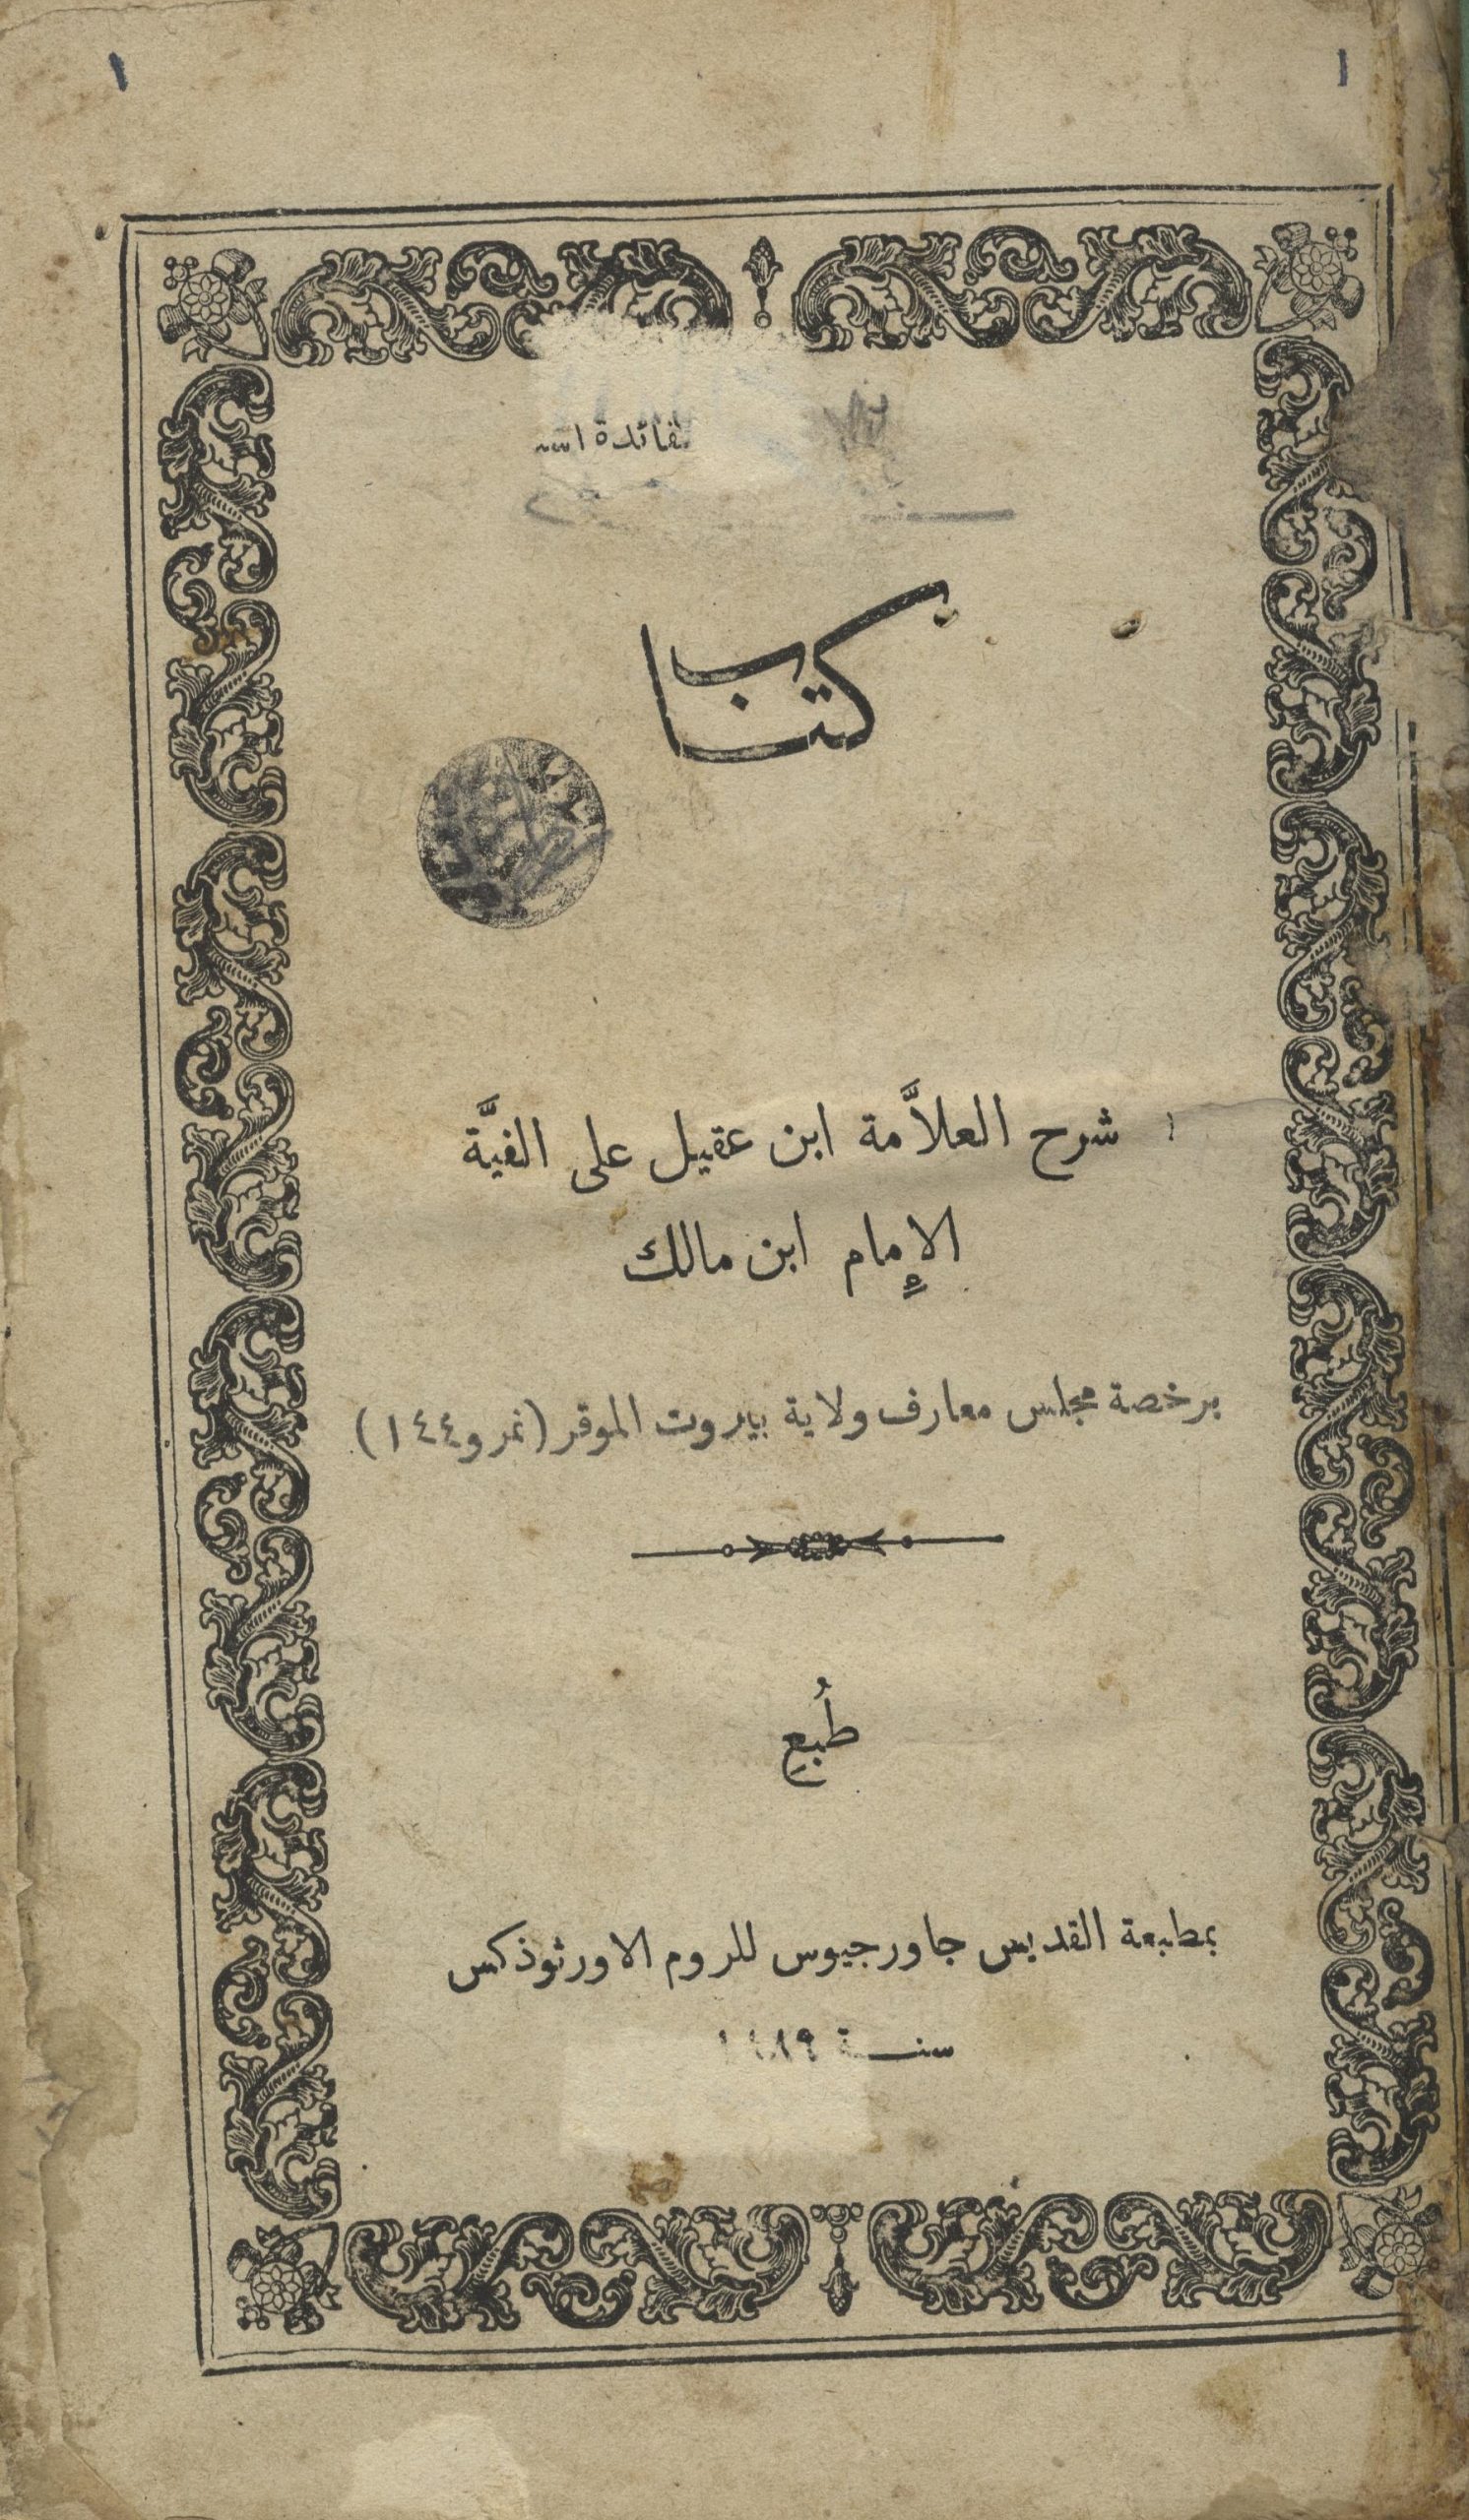 ١ ١
كتاب
شرح العلاَّمة ابن عقيل على الفيَّة
الإِمام ابن مالك
برخصة مجلس معارف ولاية بيروت الموقر (نمرو ١٤٤)
طُبِعِ
بمطبعة القديس جاورجيوس للروم الاورثوذكس
سنة